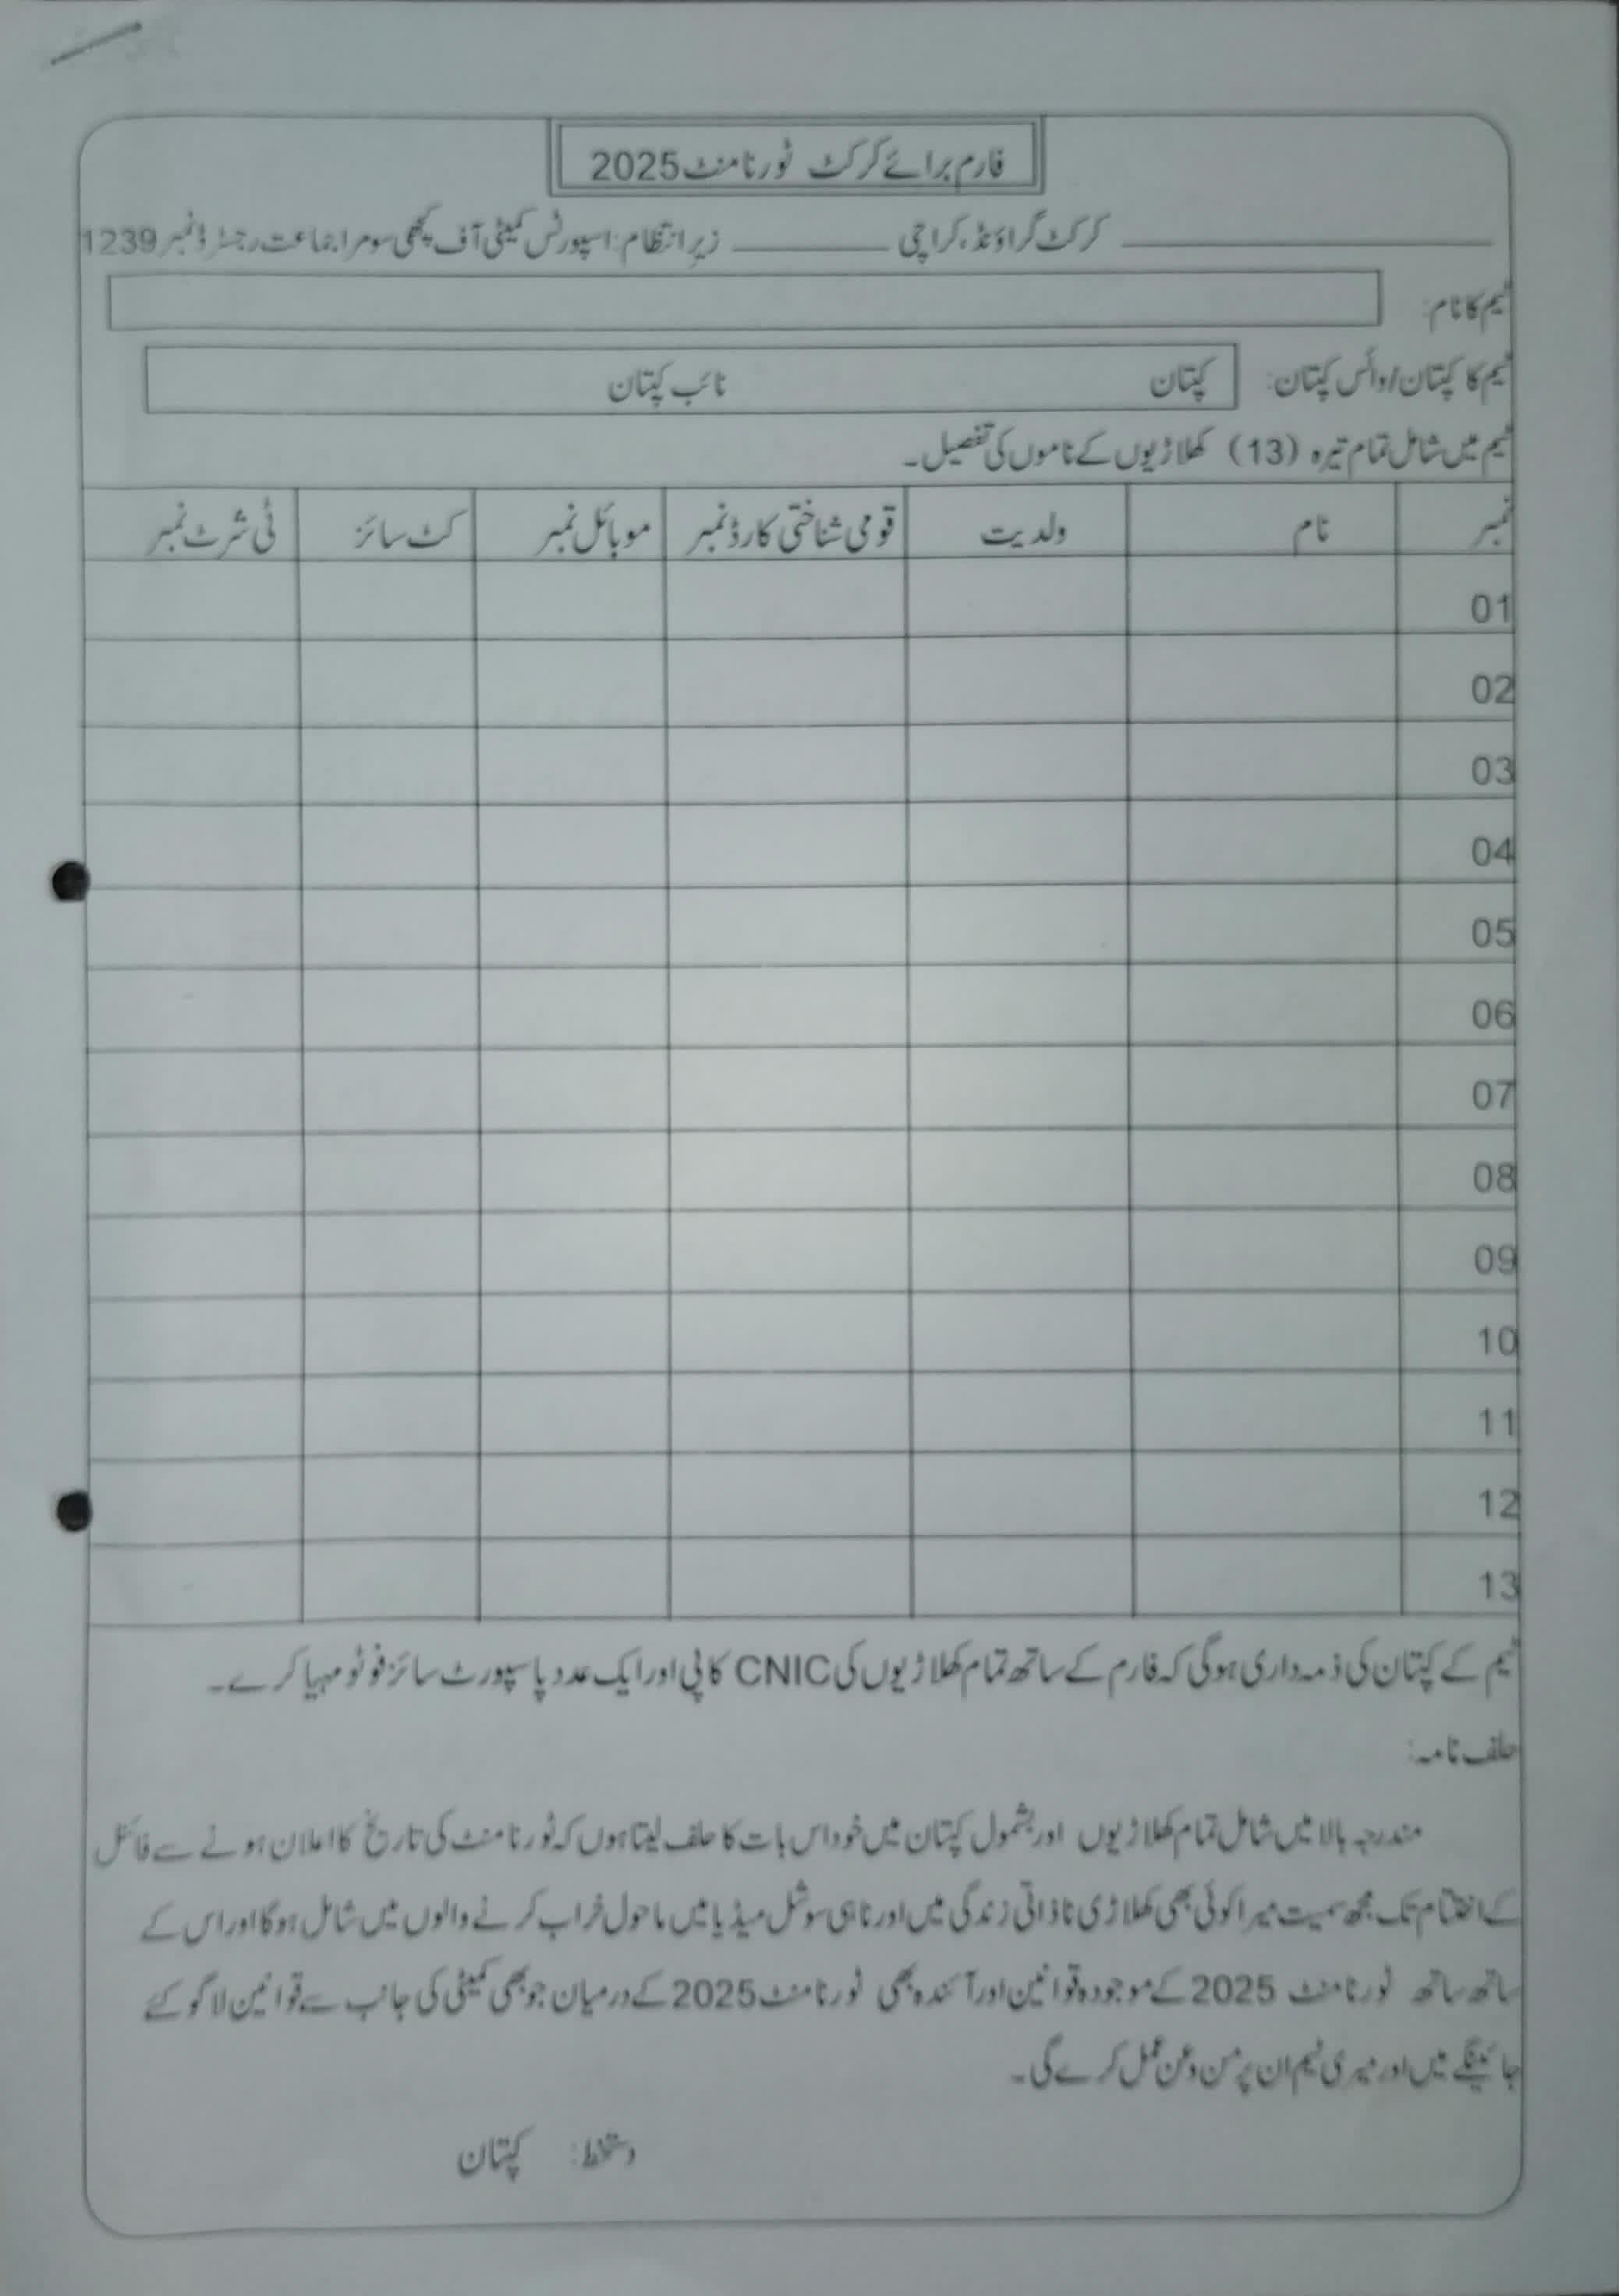 فارم برائے کرکٹ ٹورنامنٹ 2025
کرکٹ گراؤنڈ، کراچی زیر انتظام: اسپورٹس کمیٹی آف کچھی سومرا جماعت رجسٹرڈ نمبر 1239
ٹیم کا نام:
ٹیم کا کپتان/وائس کپتان: کپتان نائب کپتان
ٹیم میں شامل تمام تیرہ (13) کھلاڑیوں کے ناموں کی تفصیل۔
نمبر نام ولدیت قومی شناختی کارڈ نمبر موبائل نمبر کٹ سائز ٹی شرٹ نمبر
01
02
03
04
05
06
07
08
09
10
11
12
13
ٹیم کے کپتان کی ذمہ داری ہوگی کہ فارم کے ساتھ تمام کھلاڑیوں کی CNIC کاپی اور ایک عدد پاسپورٹ سائز فوٹو مہیا کرے۔
حلف نامہ:
مندرجہ بالا میں شامل تمام کھلاڑیوں اور بشمول کپتان میں خود اس بات کا حلف لیتا ہوں کہ ٹورنامنٹ کی تاریخ کا اعلان ہونے سے فائنل
کے اختتام تک مجھ سمیت میرا کوئی بھی کھلاڑی نا ذاتی زندگی میں اور نا ہی سوشل میڈیا میں ماحول خراب کرنے والوں میں شامل ہوگا اور اس کے
ساتھ ساتھ ٹورنامنٹ 2025 کے موجودہ قوانین اور آئندہ بھی ٹورنامنٹ 2025 کے درمیان جو بھی کمیٹی کی جانب سے قوانین لاگو کئے
جائینگے میں اور میری ٹیم ان پر من و عن عمل کرے گی۔
دستخط: کپتان